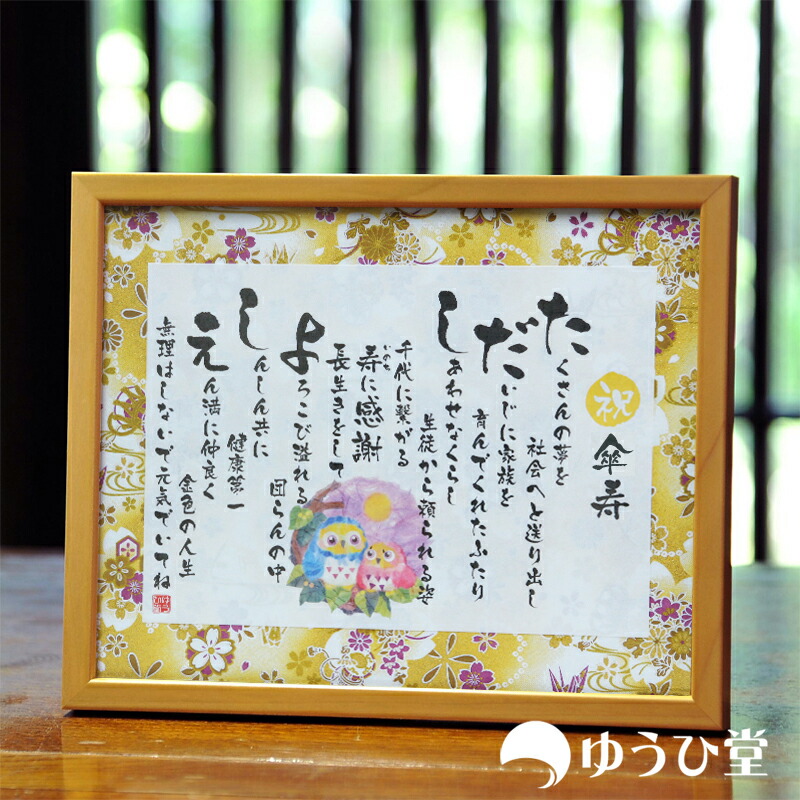 祝
傘寿
たくさんの夢を
社会へと送り出し
だいじに家族を
育んでくれたふたり
しあわせなくらし
生徒から頼られる姿
千代に繋がる
いのち
寿に感謝
長生きをして
よろこび溢れる
団らんの中
しんしん共に
健康第一
えん満に仲良く
金色の人生
無理はしないで元気でいてね
ゆうひ堂